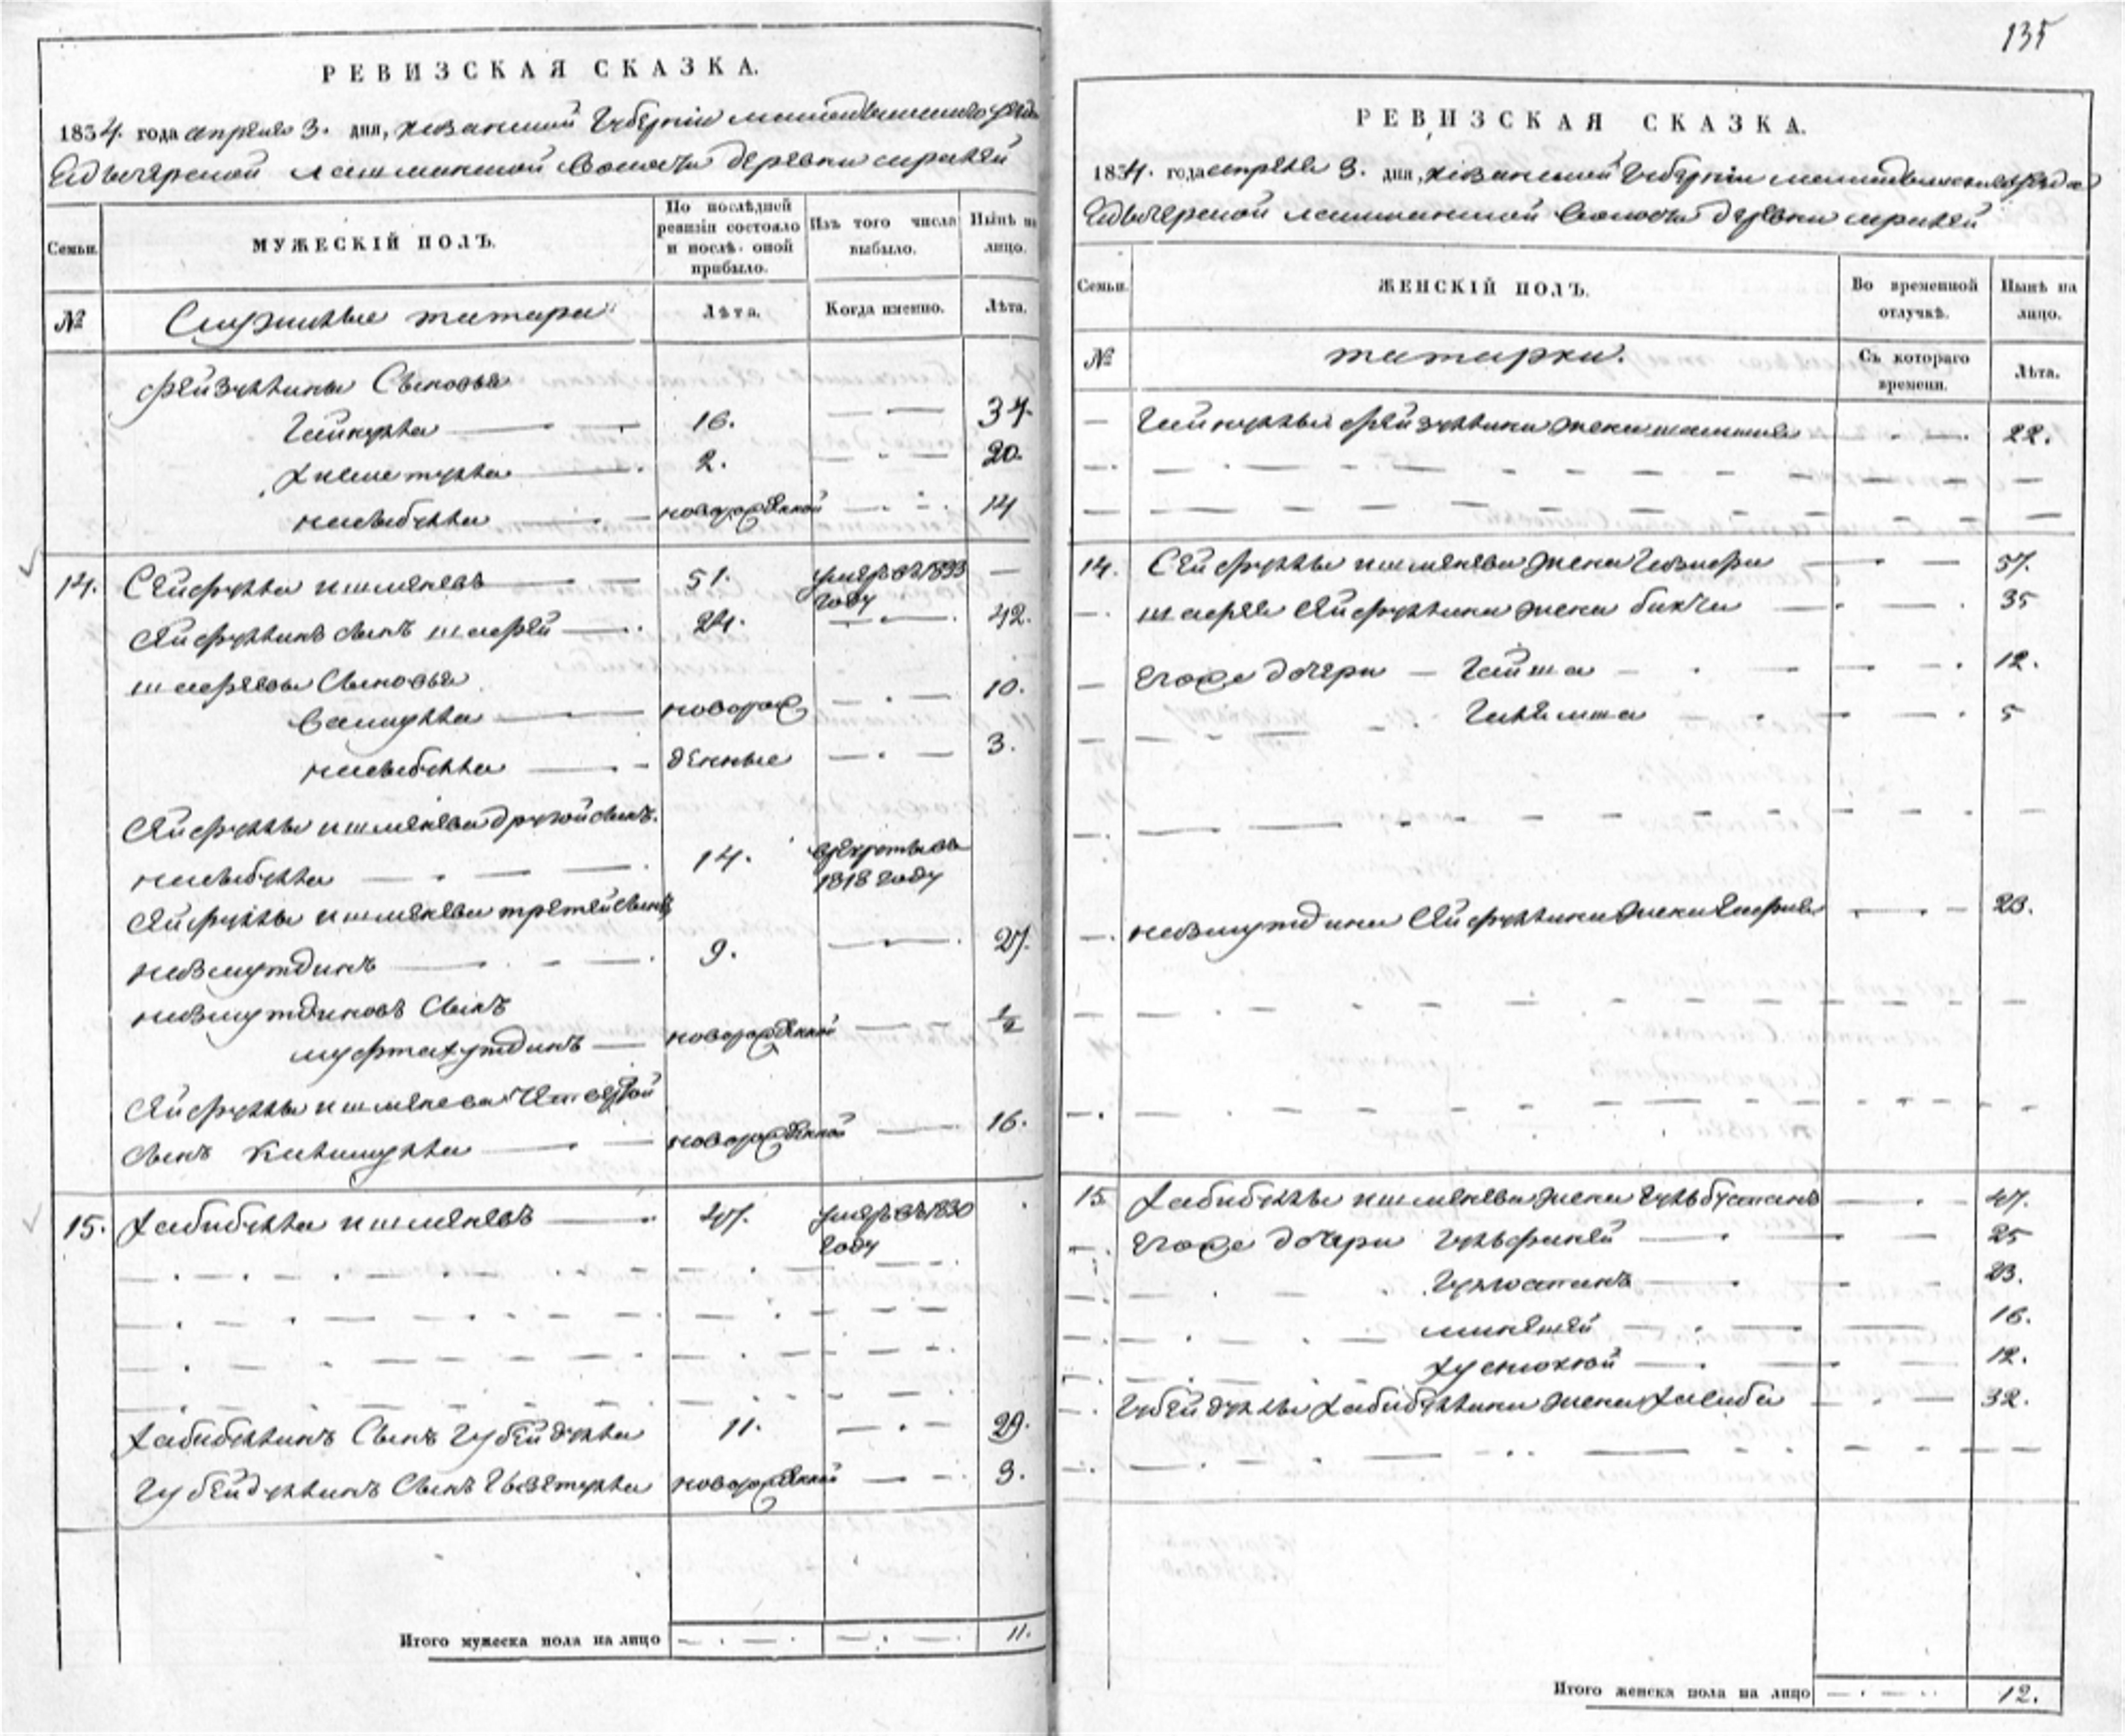 135
РЕВИЗСКАЯ СКАЗКА.
1834. года апреля 3. дня, Казанской Губернiи мамадышскаго уезда
лашманской волости деревни
Семьи. МУЖЕСКІЙ ПОЛЪ. По послѣдней ревизіи состояло и послѣ оной прибыло. Изъ того числа выбыло. Нынѣ на лицо.
№ Служилые татары Лѣта. Когда именно. Лѣта.
Фейзуллины Сыновья
Гайнулла 16. 34.
Хисметулла 2. 20.
Насыбулла новорожденной 14
14. Сейфулла ишмяневъ 51. умеръ въ 1833 году
Сейфуллинъ сынъ шафей 24. 42.
шафеевы Сыновья
Валиулла новорож 10.
Насыбулла денные 3.
Сейфуллы ишмянева другой сынъ.
Насыбулла 14. врекруты въ 1818 году
Сейфуллы ишмянева третей сынъ
Назмутдинъ 9. 27.
Назмутдиновъ Сынъ
муфтахутдинъ новорожденной 1/2
Сейфуллы ишмянева четвертой
сынъ новорожденной 16.
15. Хабибулла ишмяневъ 47. умеръ въ 1830 году
Хабибуллинъ Сынъ Губейдулла 11. 29.
Губейдуллинъ Сынъ Гизетулла новорожденной 3.
Итого мужеска пола на лицо 11.
РЕВИЗСКАЯ СКАЗКА.
1834. года апреля 3. дня, Казанской Губернiи мамадышскаго уезда
лашманской волости деревни
Семьи. ЖЕНСКІЙ ПОЛЪ. Во временной отлучкѣ. Нынѣ на лицо.
№ татарки. Съ котораго времени. Лѣта.
Гайнуллы Фейзуллина жена 22.
14. Сейфуллы ишмянева жена 57.
шафея Сейфуллина жена бикчи 35
Егоже дочери Гайша 12.
Галимша 5
Назмутдина Сейфуллина жена 23.
15 Хабибуллы ишмянева жена Гульбустанъ 47.
Егоже дочери Гульфиней 25
Гулюстанъ 23.
16.
12.
Губейдуллы Хабибуллина жена Халиба 32.
Итого женска пола на лицо 12.